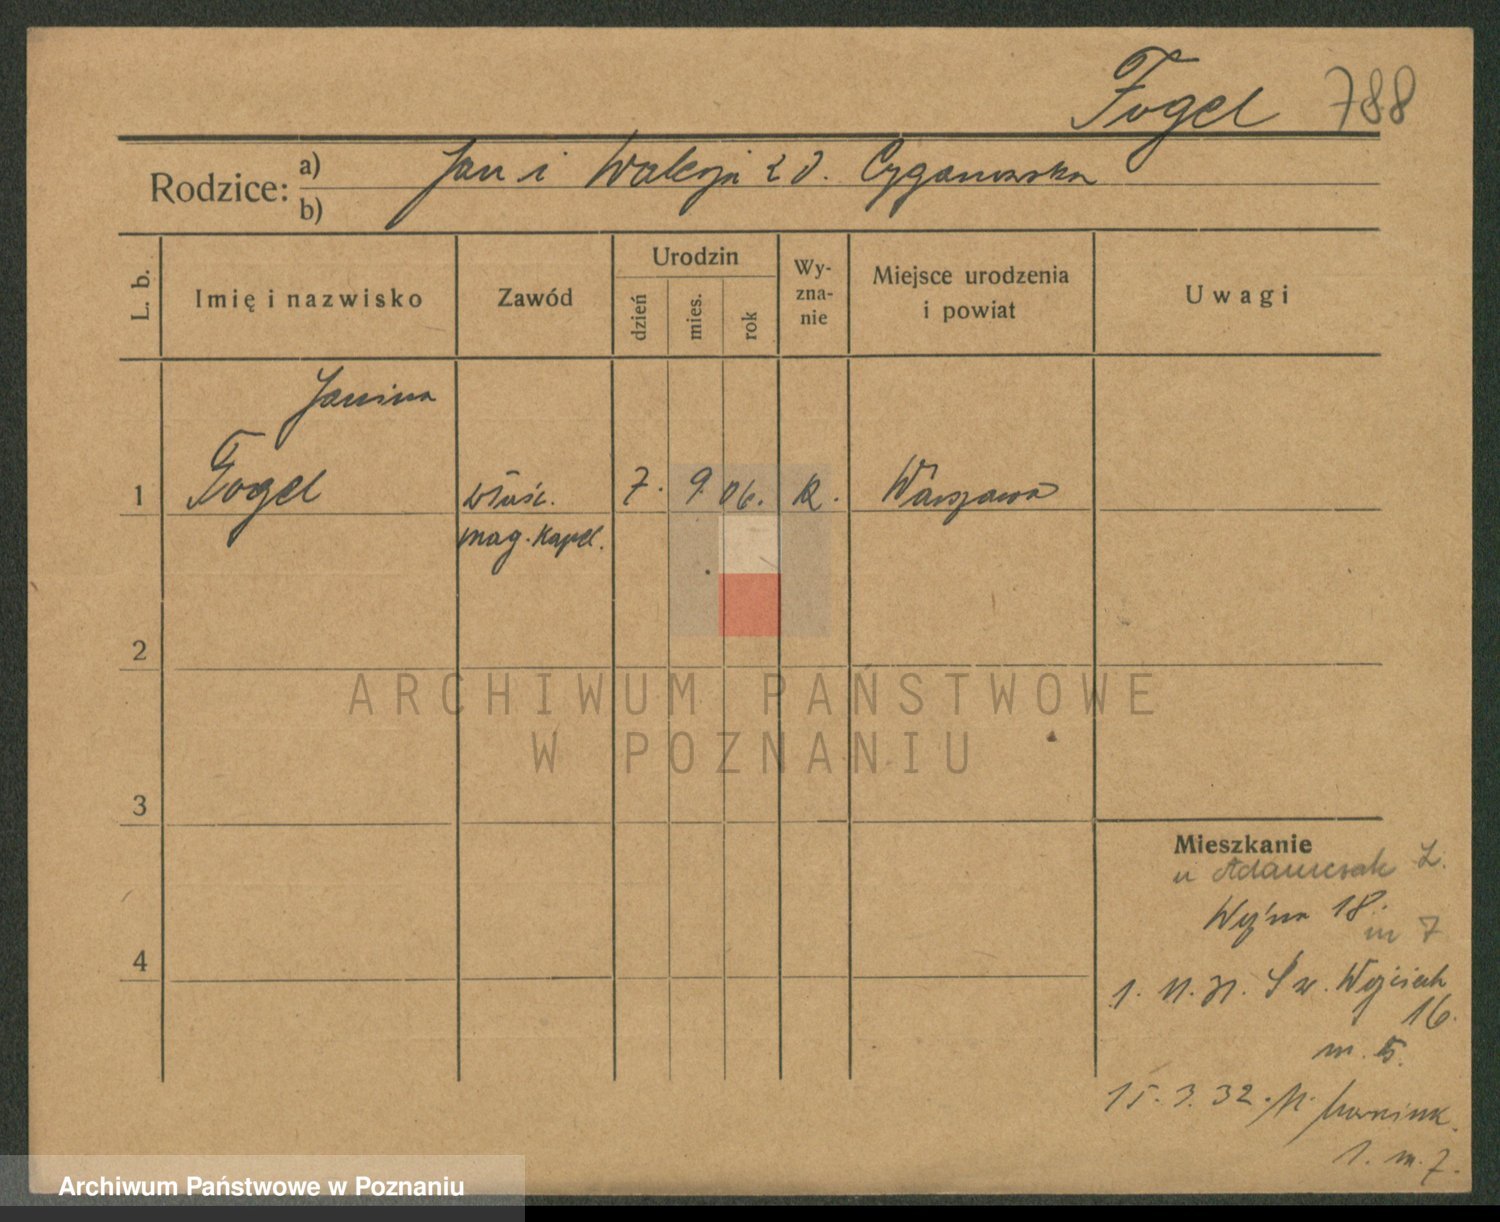 Fogel 788
Rodzice: a) b)
Jan i Waleria z d. Cyganowska
L. b.
Imię i nazwisko
Zawód
Urodzin
dzień
mies.
rok
Wy-
zna-
nie
Miejsce urodzenia
i powiat
Uwagi
Janina
1 Fogel właśc. 7. 9 06. R. Warszawa
mag. kapel.
2
3
4
Mieszkanie
u Adamczak
Woźna 18.
m 7
1. 11. 31. Św. Wojciech
16.
m. 5.
15. 3. 32. M.
1. m. 7.
ARCHIWUM PAŃSTWOWE
W POZNANIU
Archiwum Państwowe w Poznaniu